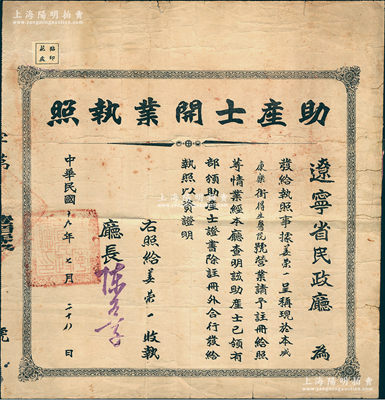 上海陽明拍賣
粘印
花處
助產士開業執照
遼寧省民政廳 為
發給執照事據姜崇一呈稱現於本城
康樂街得生醫院號營業請予註冊給照
等情業經本廳查明該助產士已領有
部頒助產士證書除註冊外合行發給
執照以資證明
右照給姜崇一收執
廳長
中華民國十九年七月二十八日
字第
號